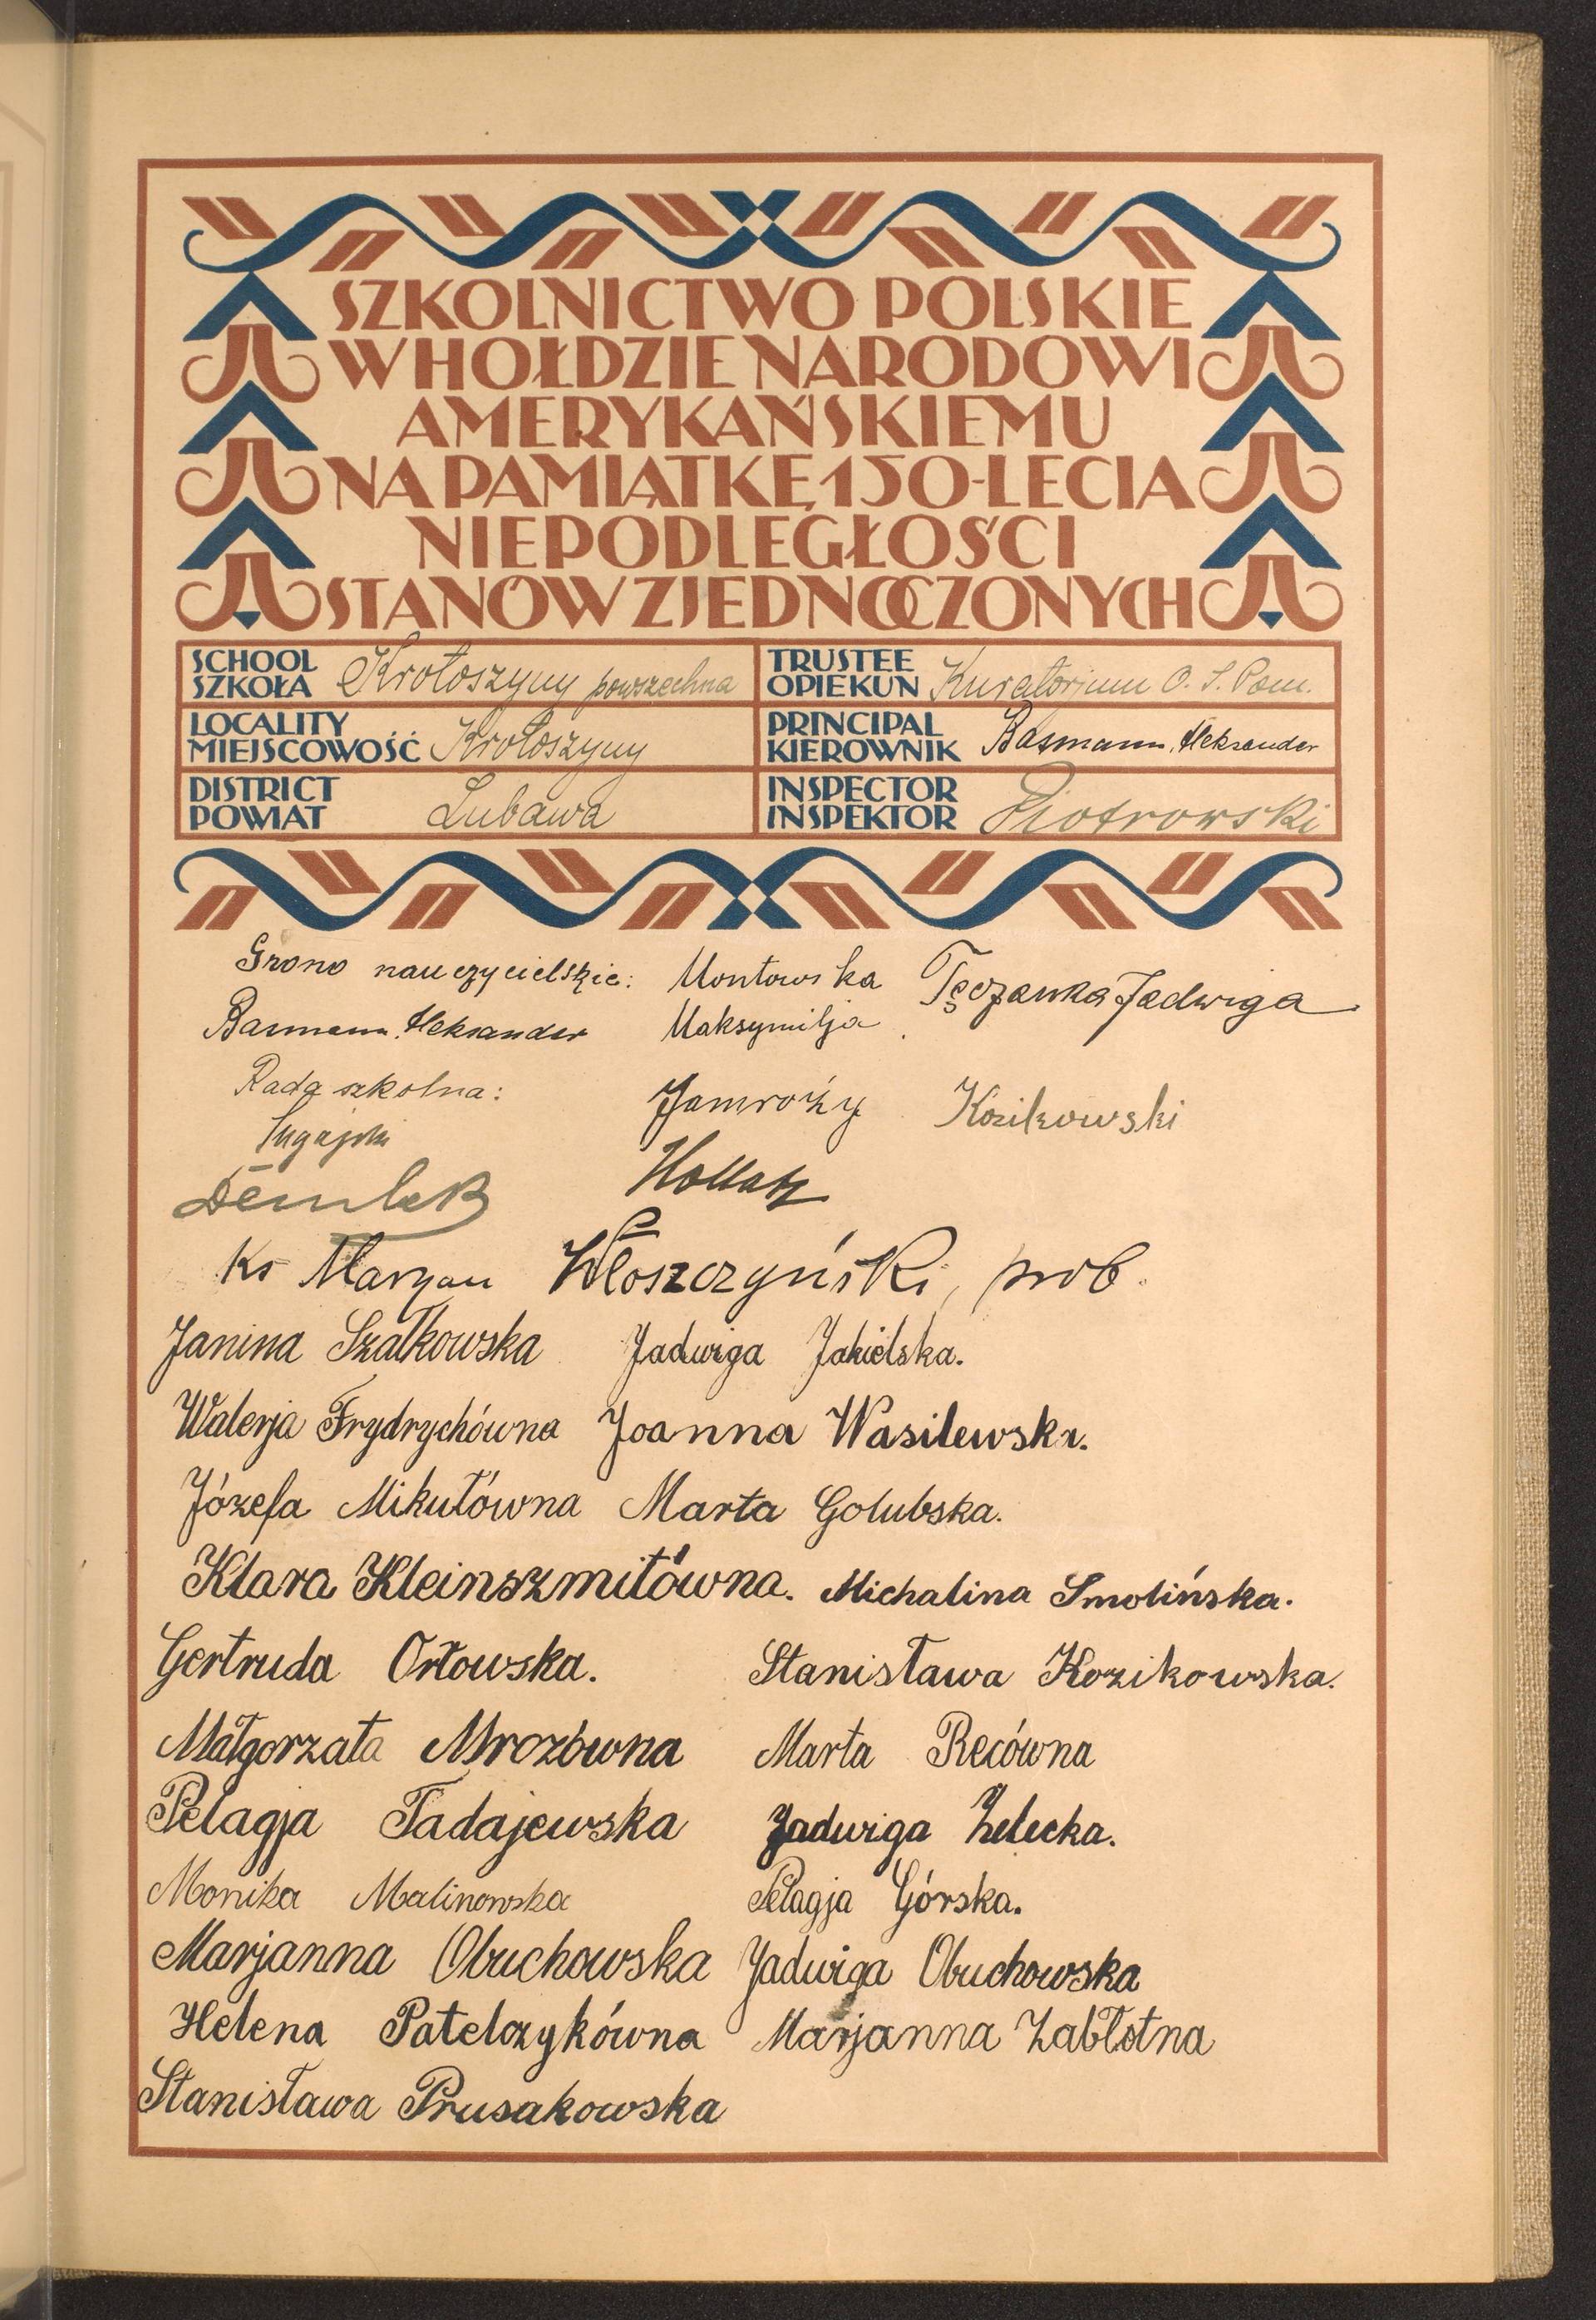 SZKOLNICTWO POLSKIE
W HOŁDZIE NARODOWI
AMERYKAŃSKIEMU
NA PAMIĄTKĘ 150-LECIA
NIEPODLEGŁOŚCI
STANÓW ZJEDNOCZONYCH
SCHOOL
SZKOŁA Krotoszyny powszechna
TRUSTEE
OPIEKUN Kuratorium O. S. Pom.
LOCALITY
MIEJSCOWOŚĆ Krotoszyny
PRINCIPAL
KIEROWNIK Basmann, Aleksander
DISTRICT
POWIAT Lubawa
INSPECTOR
INSPEKTOR Piotrowski
Grono nauczycielskie: Montowska Tęczanka Jadwiga
Basmann, Aleksander Maksymilja
Rada szkolna: Jamroży Kozikowski
Ks Maryan Włoszczyński, prob.
Janina Szałkowska Jadwiga Jakielska.
Walerja Frydrychówna Joanna Wasilewska.
Józefa Mikułówna Marta Golubska.
Klara Kleinszmitówna. Michalina Smolińska.
Gertruda Orłowska. Stanisława Kozikowska.
Małgorzata Mrozówna Marta Recówna
Pelagja Tadajewska Jadwiga Zelecka.
Monika Malinowska Pelagja Górska.
Marjanna Obuchowska Jadwiga Obuchowska
Helena Patelczykówna Marjanna Zabłotna
Stanisława Prusakowska